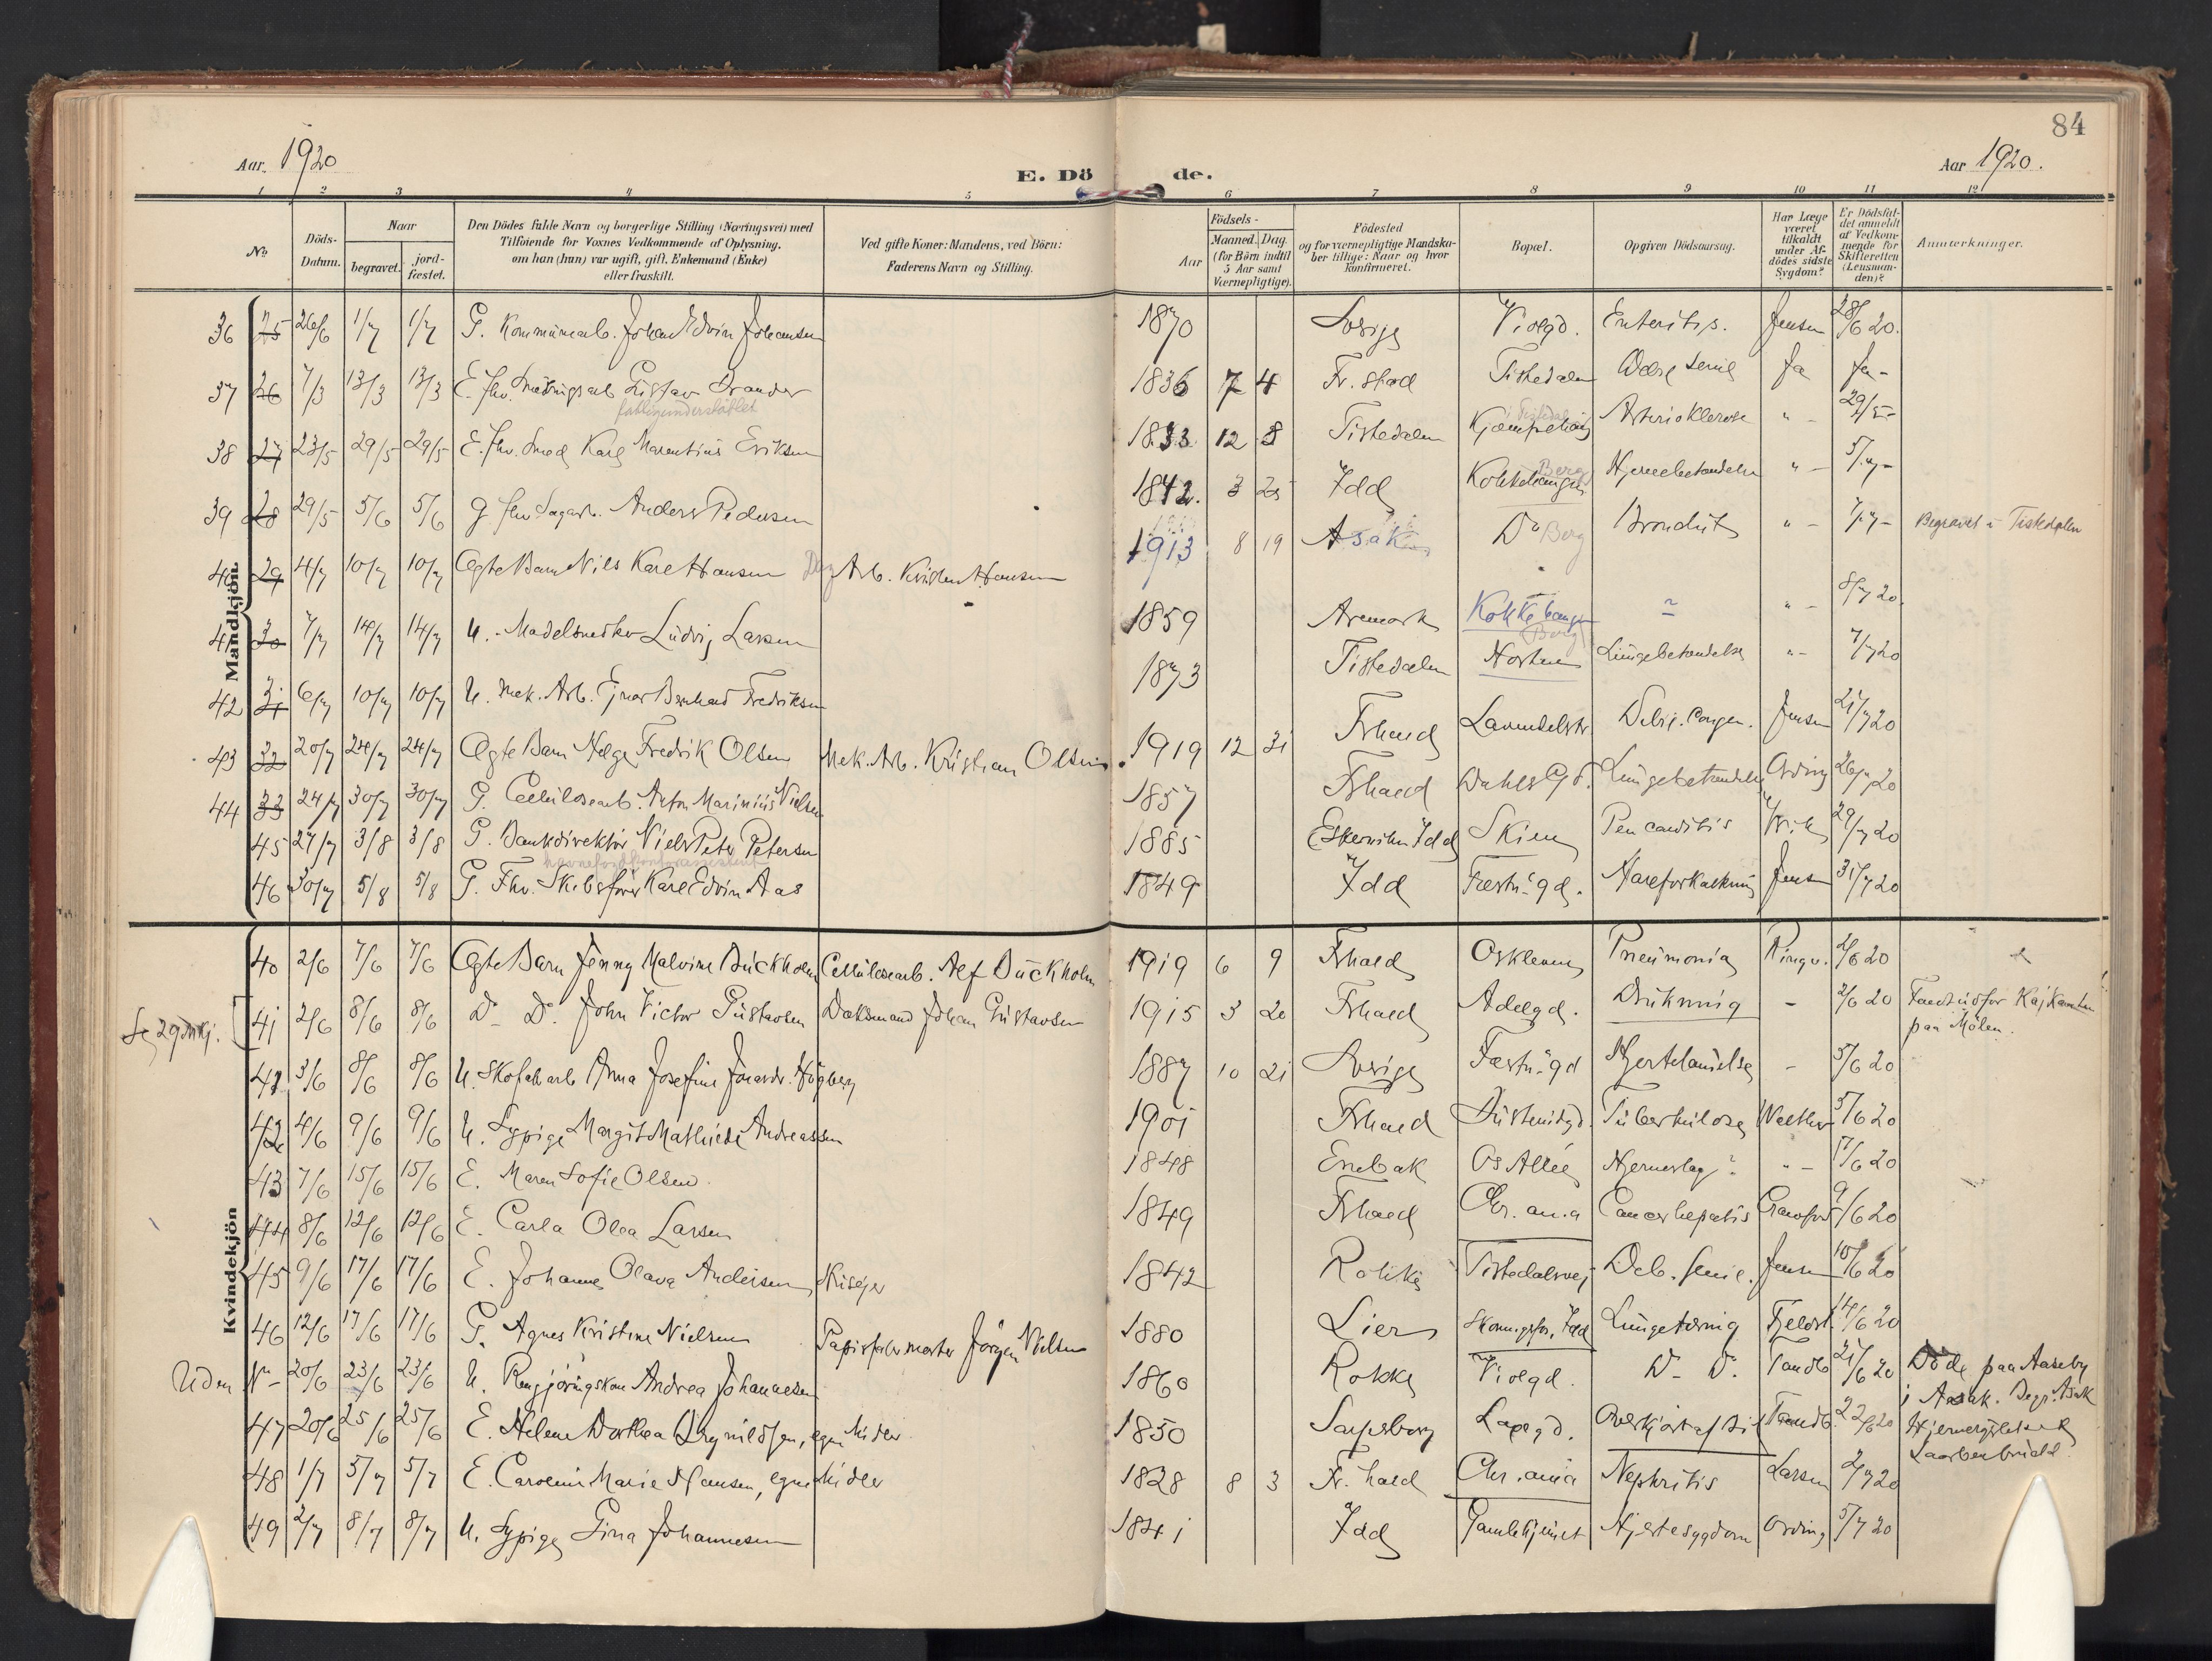 84
Aar. 1920
E. Dö de.
Aar 1920.
1 2 3 4 5 6 7 8 9 10 11 12
No
Döds-Datum.
Naar begravet. jord-fæstet.
Den Dödes fulde Navn og borgerlige Stilling (Næringsvei) med
Tilföiende for Voxnes Vedkommende af Oplysning,
om han (hun) var ugift, gift, Enkemand (Enke)
eller fraskilt.
Ved gifte Koner: Mandens, ved Börn:
Faderens Navn og Stilling.
Födsels-
Aar Maaned. Dag.
(for Börn indtil
5 Aar samt
Værnepligtige).
Födested
og for værnepligtige Mandska-
ber tillige: Naar og hvor
konfirmeret.
Bopæl.
Opgiven Dödsaarsag.
Har Læge
været
tilkaldt
under Af-
dödes sidste
Sygdom?
Er Dödsfal-
det anmeldt
af Vedkom-
mende for
Skifteretten
(Lensman-
den)?
Anmærkninger.
Mandkjön.
36 25 26/6 1/7 1/7 G. Kommunearb. Johan Edvin Johansen 1870 Sverige Violgd. Enteritis. Jensen 28/6 20.
37 26 7/3 13/3 13/3 E. fhv. Gustav Brander 1836 7 4 Fr.stad Tistedalen senil Ja Ja -
fattigunderstöttet
38 27 23/5 29/5 29/5 E. fhv. Smed Karl Marentius Eriksen 1833 12 8 Tistedalen Arterioklerose " - 29/5 -
39 28 29/5 5/6 5/6 g. fhv Sagarb. Anders Pedersen 1842. 3 25 Idd Berg Hjernebetændelse " - 5/7 -
40 29 4/7 10/7 10/7 Ægte Barn Nils Karl Hansen Arb. Kristen Hansen 1913 8 19 Asak Do Berg Bronchit " - 7/7 - Begravet i Tistedalen
41 30 7/7 14/7 14/7 U. Modelsnedker Ludvig Larsen 1859 Aremark Berg " - 8/7 20.
42 31 6/7 10/7 10/7 U. Mek. Arb. Ejnar Bernhard Fredriksen 1873 Tistedalen Lungebetændelse " - 7/7 20
43 32 20/7 24/7 24/7 Ægte Barn Helge Fredrik Olsen Mek. Arb. Kristian Olsen 1919 12 31 Frhald Lavendelstr. Jensen 21/7 20
44 33 24/7 30/7 30/7 G. Cellulosearb. Anton Marinius Nielsen 1857 Frhald Dahls Gd. Lungebetændelse Ording 26/7 20
45 27/7 3/8 3/8 G. Bankdirektör Niels Peter Petersen 1885 Idd Skien 29/7 20
46 30/7 5/8 5/8 G. Fhv. Skibsförer Karl Edvin Aas 1849 Idd Fæstn.gd. Aareforkalkning Jensen 31/7 20
Kvindekjön
40 2/6 7/6 7/6 Ægte Barn Jenny Malvine Buckholm Cellulosearb. Alf Buckholm 1919 6 9 Frhald Oskleven Pneumonia Ringv. 2/6 20
Se 29 Mkj. 41 2/6 8/6 8/6 Do Do John Victor Gustavsen Johan Gustavsen 1915 3 20 Frhald Adelgd. Drukning - 2/6 20 Fandt udfor Kajkanten
paa Mölen.
41 3/6 8/6 8/6 U. Skofab.arb Anna Josefine Högberg 1887 10 21 Sverige Fæstn.gd Hjertelamelse - 5/6 20
42 4/6 9/6 9/6 U. Sypige Margit Mathilde Andreassen 1901 Frhald Tuberkulose Walther 5/6 20
43 7/6 15/6 15/6 E. Maren Sofie Olsen 1848 Enebak Os Allée Hjerneslag? " - 17/6 20
44 8/6 12/6 12/6 E. Carla Olea Larsen 1849 Frhald Chr.ania Cancer hepatis 9/6 20
45 9/6 17/6 17/6 E. Johanne Olava Andersen Huseier 1842 Rokke Tistedalsvej Deb. senil. Jensen 10/6 20
46 12/6 17/6 17/6 G. Agnes Kristine Nielsen Papirfabr.mester Jörgen Nilsen 1880 Lier Skonningsfos, Idd Lungetæring Fjeldst. 14/6 20
Uden No - 20/6 23/6 23/6 U. Rengjöringskone Andrea Johannesen 1860 Rokke Violgd. Do Do. Tandb. 21/6 20 Döde paa Aaseby
i Asak. Begr. Asak
47 20/6 25/6 25/6 E. Helene Dorthea Brynildsen, egne Midler 1850 Sarpsborg Overkjört af bil Tandb. 22/6 20 Hjernerystelse &
Laarbensbrudd
48 1/7 5/7 5/7 E. Caroline Marie Hansen, egne Midler 1828 8 3 Fr.hald Chr.ania Nephritis Larsen 2/7 20
49 2/7 8/7 8/7 U. Sypige Gina Johannesen 1841 Idd Gamlehjemet Hjertesygdom Ording 5/7 20